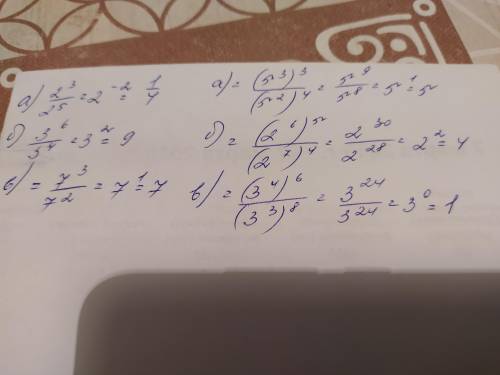 а) 2³/2⁵ = 2⁻² = 1/4
б) 3⁶/3⁴ = 3² = 9
в) = 7³/7² = 7¹ = 7
а) = (5³)³/(5²)⁴ = 5⁹/5⁸ = 5¹ = 5
б) = (2⁶)⁵/(2⁷)⁴ = 2³⁰/2²⁸ = 2² = 4
в) = (3⁴)⁶/(3³)⁸ = 3²⁴/3²⁴ = 3⁰ = 1